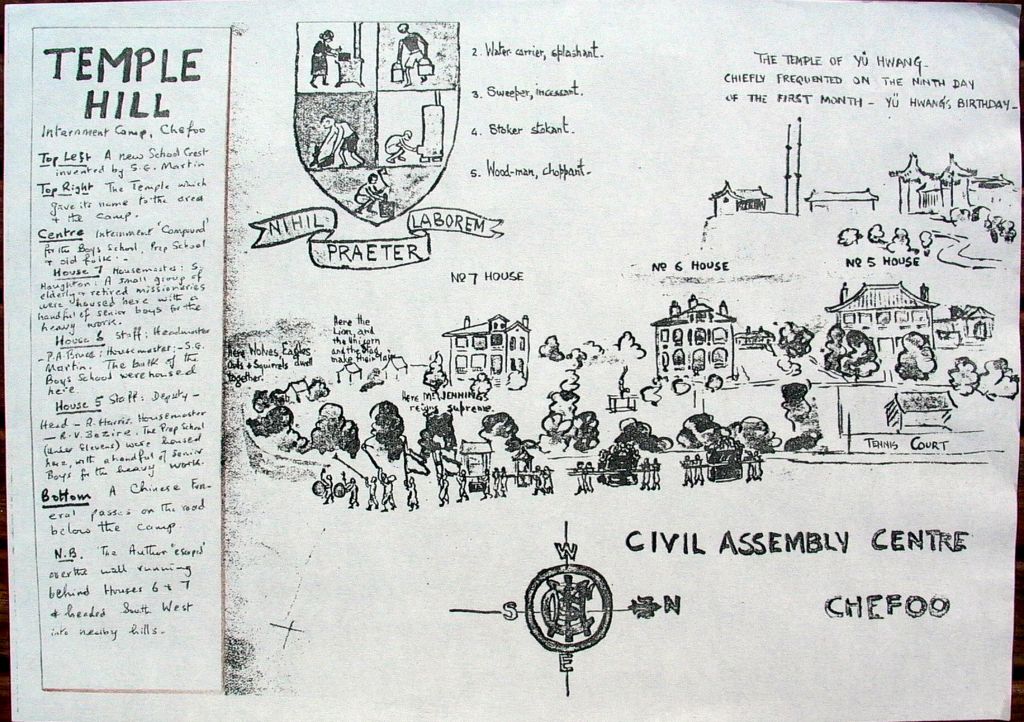 TEMPLE
HILL
Internment Camp, Chefoo
Top Left A new School Crest
invented by S.G. Martin
Top Right The Temple which
gave its name to the area
+ the camp.
Centre Internment 'Compound'
for the Boys School, Prep School
+ old folk :-
House 7 Housemaster: S.
Houghton: A small group of
elderly + retired missionaries
were housed here with a
handful of senior boys for the
heavy work.
House 6 Staff: Headmaster
- P.A. Bruce; Housemaster: - S.G.
Martin. The bulk of the
Boys School were housed
here.
House 5 Staff: Deputy -
Head - R. Harris. Housemaster
- R.V. Bazire. The Prep School
(under Elevens) were housed
here, with a handful of senior
Boys for the heavy work.
Bottom A Chinese Fun-
eral passes on the road
below the camp.
N.B. The Author 'escaped'
over the wall running
behind Houses 6 + 7
+ headed South West
into nearby hills.
2. Water-carrier, splashant.
3. Sweeper, incessant.
4. Stoker stokant.
5. Wood-man, choppant.
NIHIL
PRAETER
LABOREM
THE TEMPLE OF YÜ HWANG.
CHIEFLY FREQUENTED ON THE NINTH DAY
OF THE FIRST MONTH - YÜ HWANG'S BIRTHDAY.
No 7 HOUSE
No 6 HOUSE
No 5 HOUSE
Here the
Lion, and
the Unicorn
and the Stag
make their lair
Here Wolves, Eagles
Owls + Squirrels dwell
together.
Here Mr JENNINGS
reigns supreme.
TENNIS COURT
CIVIL ASSEMBLY CENTRE
CHEFOO
W
S
N
E